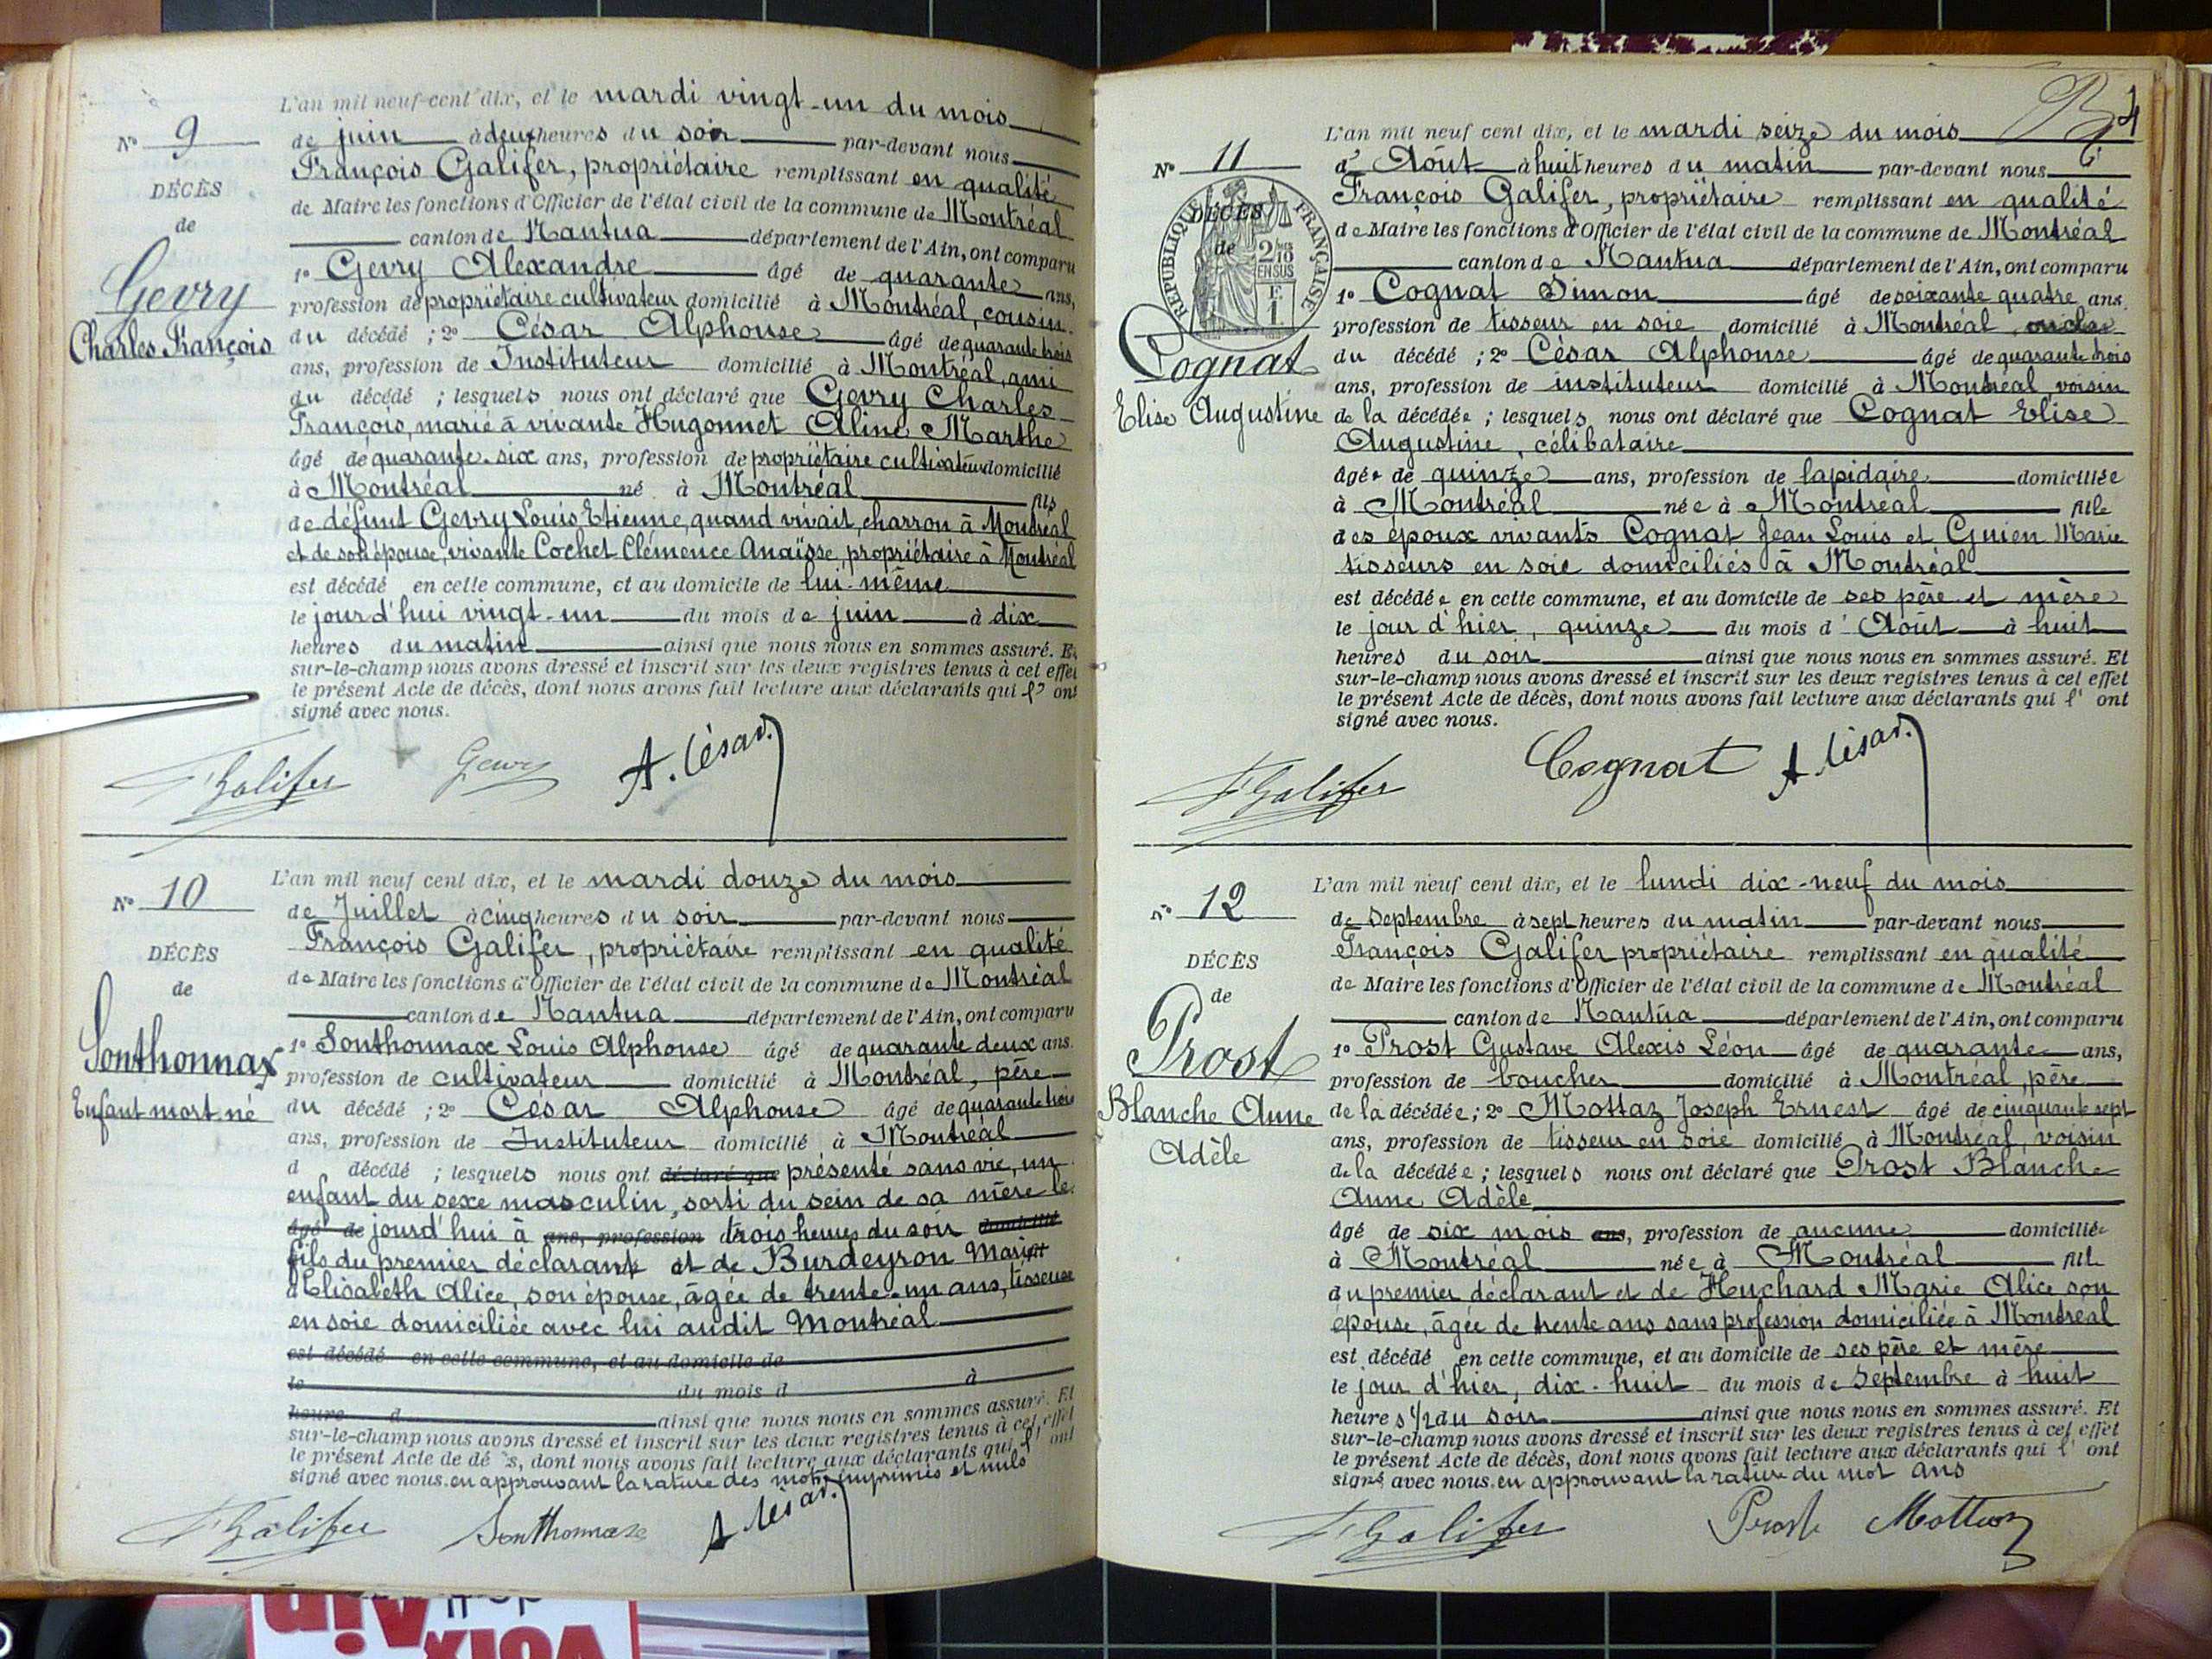 L'an mil neuf-cent dix, et le mardi vingt-un du mois
N° 9
de juin à deux heures du soir par-devant nous
François Galifer, propriétaire remplissant en qualité
DÉCÈS
de Maire les fonctions d'Officier de l'état civil de la commune de Montréal
de
canton de Nantua département de l'Ain, ont comparu
Gevry
1° Gevry Alexandre âgé de quarante ans,
profession de propriétaire cultivateur domicilié à Montréal, cousin
Charles François
du décédé ; 2° César Alphonse âgé de quarante trois
ans, profession de Instituteur domicilié à Montréal, ami
du décédé ; lesquels nous ont déclaré que Gevry Charles
François, marié à vivante Hugonnet Aline Marthe
âgé de quarante-six ans, profession de propriétaire cultivateur domicilié
à Montréal né à Montréal fils
de défunt Gevry Louis Etienne, quand vivait, charron à Montréal
et de son épouse, vivante Cochet Clémence Anaïsse, propriétaire à Montréal
est décédé en cette commune, et au domicile de lui-même
le jour d'hui vingt-un du mois de juin à dix
heures du matin ainsi que nous nous en sommes assuré. Et
sur-le-champ nous avons dressé et inscrit sur les deux registres tenus à cet effet
le présent Acte de décès, dont nous avons fait lecture aux déclarants qui l' ont
signé avec nous.
F Galifer Gevry A. César
L'an mil neuf cent dix, et le mardi douze du mois
N° 10
de Juillet à cinq heures du soir par-devant nous
François Galifer, propriétaire remplissant en qualité
DÉCÈS
de Maire les fonctions d'Officier de l'état civil de la commune de Montréal
de
canton de Nantua département de l'Ain, ont comparu
Sonthonnax
1° Sonthonnax Louis Alphonse âgé de quarante deux ans.
profession de cultivateur domicilié à Montréal, père
Enfant mort-né
du décédé ; 2° César Alphonse âgé de quarante trois
ans, profession de Instituteur domicilié à Montréal
d décédé ; lesquels nous ont déclaré que présenté sans vie, un
enfant du sexe masculin, sorti du sein de sa mère le
âgé de jourd'hui à ans, profession trois heures du soir domicilié
fils du premier déclarant et de Burdeyron Marie
Elisabeth Alice, son épouse, âgée de trente-un ans, tisseuse
en soie domiciliée avec lui audit Montréal
est décédé en cette commune, et au domicile de
le du mois d à
heure d ainsi que nous nous en sommes assuré. Et
sur-le-champ nous avons dressé et inscrit sur les deux registres tenus à cet effet
le présent Acte de décès, dont nous avons fait lecture aux déclarants qui l' ont
signé avec nous. en approuvant la rature des mots imprimés et nuls
F Galifer Sonthonnax A. César
4
L'an mil neuf cent dix, et le mardi seize du mois
N° 11
d' Août à huit heures du matin par-devant nous
François Galifer, propriétaire remplissant en qualité
DÉCÈS
de
RÉPUBLIQUE FRANÇAISE
2/10 EN SUS
F. 1.
de Maire les fonctions d'Officier de l'état civil de la commune de Montréal
canton de Nantua département de l'Ain, ont comparu
1° Cognat Simon âgé de soixante quatre ans.
profession de tisseur en soie domicilié à Montréal oncle
Cognat
du décédé ; 2° César Alphonse âgé de quarante trois
ans, profession de instituteur domicilié à Montréal voisin
Elise Augustine
de la décédée ; lesquels nous ont déclaré que Cognat Elise
Augustine, célibataire
âgée de quinze ans, profession de lapidaire domiciliée
à Montréal née à Montréal fille
des époux vivants Cognat Jean Louis et Guien Marie
tisseurs en soie domiciliés à Montréal
est décédée en cette commune, et au domicile de ses père et mère
le jour d'hier, quinze du mois d' Août à huit
heures du soir ainsi que nous nous en sommes assuré. Et
sur-le-champ nous avons dressé et inscrit sur les deux registres tenus à cet effet
le présent Acte de décès, dont nous avons fait lecture aux déclarants qui l' ont
signé avec nous.
F Galifer Cognat A. César
L'an mil neuf cent dix, et le lundi dix-neuf du mois
N° 12
de septembre à sept heures du matin par-devant nous
François Galifer propriétaire remplissant en qualité
DÉCÈS
de Maire les fonctions d'Officier de l'état civil de la commune de Montréal
de
canton de Nantua département de l'Ain, ont comparu
Prost
1° Prost Gustave Alexis Léon âgé de quarante ans,
profession de boucher domicilié à Montréal, père
Blanche Anne
Adèle
de la décédée ; 2° Mottaz Joseph Ernest âgé de cinquante sept
ans, profession de tisseur en soie domicilié à Montréal, voisin
de la décédée ; lesquels nous ont déclaré que Prost Blanche
Anne Adèle
âgé de six mois ans, profession de aucune domiciliée
à Montréal née à Montréal fille
du premier déclarant et de Huchard Marie Alice son
épouse, âgée de trente ans sans profession domiciliée à Montréal
est décédé en cette commune, et au domicile de ses père et mère
le jour d'hier, dix-huit du mois de Septembre à huit
heures 1/2 du soir ainsi que nous nous en sommes assuré. Et
sur-le-champ nous avons dressé et inscrit sur les deux registres tenus à cet effet
le présent Acte de décès, dont nous avons fait lecture aux déclarants qui l' ont
signé avec nous. en approuvant la rature du mot ans
F Galifer Prost Mottaz